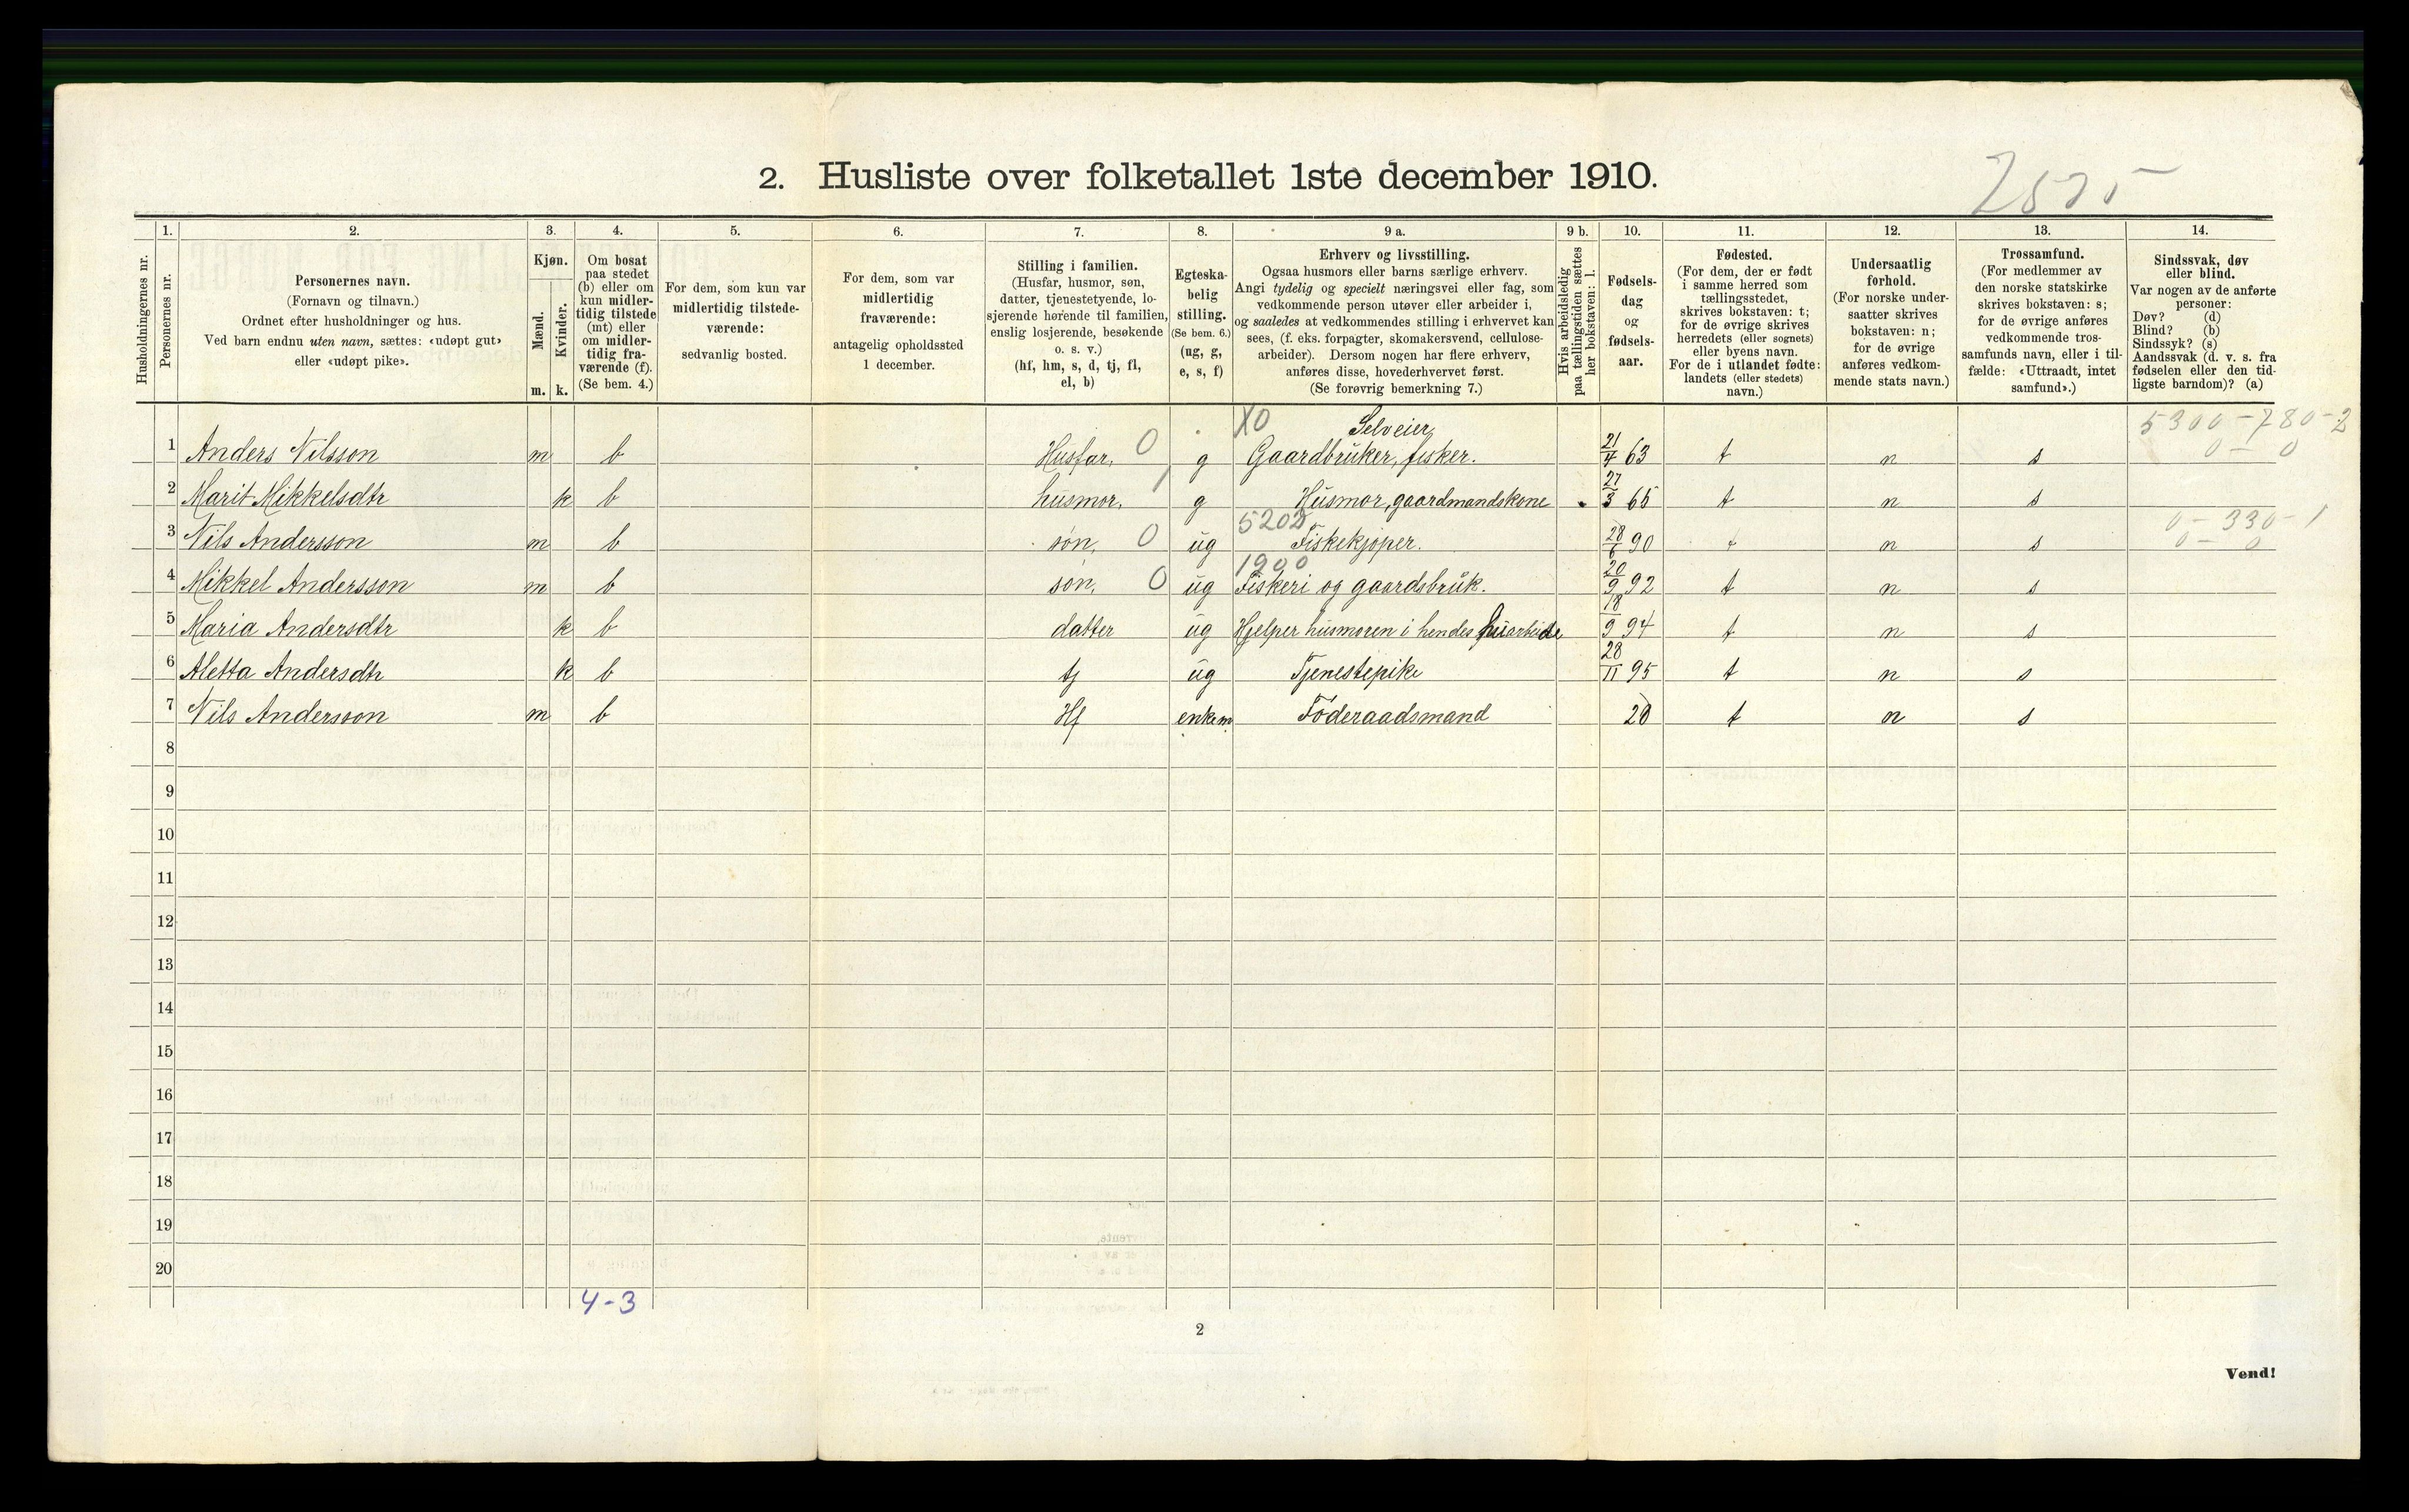 2. Husliste over folketallet 1ste december 1910.
Husholdningernes nr.
1.
Personernes nr.
2.
Personernes navn.
(Fornavn og tilnavn.)
Ordnet efter husholdninger og hus.
Ved barn endnu uten navn, sættes: «udøpt gut»
eller «udøpt pike».
3.
Kjøn.
Mænd.
Kvinder.
m. k.
4.
Om bosat
paa stedet
(b) eller om
kun midler-
tidig tilstede
(mt) eller
om midler-
tidig fra-
værende (f).
(Se bem. 4.)
5.
For dem, som kun var
midlertidig tilstede-
værende:
sedvanlig bosted.
6.
For dem, som var
midlertidig
fraværende:
antagelig opholdssted
1 december.
7.
Stilling i familien.
(Husfar, husmor, søn,
datter, tjenestetyende, lo-
sjerende hørende til familien,
enslig losjerende, besøkende
o. s. v.)
(hf, hm, s, d, tj, fl,
el, b)
8.
Egteska-
belig
stilling.
(Se bem. 6.)
(ug, g,
e, s, f)
9 a.
Erhverv og livsstilling.
Ogsaa husmors eller barns særlige erhverv.
Angi tydelig og specielt næringsvei eller fag, som
vedkommende person utøver eller arbeider i,
og saaledes at vedkommendes stilling i erhvervet kan
sees, (f. eks. forpagter, skomakersvend, cellulose-
arbeider). Dersom nogen har flere erhverv,
anføres disse, hovederhvervet først.
(Se forøvrig bemerkning 7.)
9 b.
Hvis arbeidsledig
paa tællingstiden sættes
her bokstaven: l.
10.
Fødsels-
dag
og
fødsels-
aar.
11.
Fødested.
(For dem, der er født
i samme herred som
tællingsstedet,
skrives bokstaven: t;
for de øvrige skrives
herredets (eller sognets)
eller byens navn.
For de i utlandet fødte:
landets (eller stedets)
navn.)
12.
Undersaatlig
forhold.
(For norske under-
saatter skrives
bokstaven: n;
for de øvrige
anføres vedkom-
mende stats navn.)
13.
Trossamfund.
(For medlemmer av
den norske statskirke
skrives bokstaven: s;
for de øvrige anføres
vedkommende tros-
samfunds navn, eller i til-
fælde: «Uttraadt, intet
samfund».)
14.
Sindssvak, døv
eller blind.
Var nogen av de anførte
personer:
Døv? (d)
Blind? (b)
Sindssyk? (s)
Aandssvak (d. v. s. fra
fødselen eller den tid-
ligste barndom)? (a)
X0 Selveier 5300-780-2
1 Anders Nilsson m b Husfar, 0 g Gaardbruker, fisker. 21/4 63 t n s 0-0
2 Marit Mikkelsdtr k b husmor, 1 g Husmor, gaardmandskone 27/3 65 t n s
5202 0-330-1
3 Nils Andersson m b søn, 0 ug Fiskekjøper. 28/6 90 t n s 0-0
1900
4 Mikkel Andersson m b søn, 0 ug Fiskeri og gaardsbruk. 20/9 92 t n s
5 Maria Andersdtr k b datter ug Hjelper husmoren i hendes huarbeide 18/9 94 t n s
6 Aletta Andersdtr k b tj ug Tjenestepike 28/11 95 t n s
7 Nils Andersson m b Hf enkem. Føderaadsmand 20 t n s
8
9
10
11
12
13
14
15
16
17
18
19
20
4-3
2
Vend!